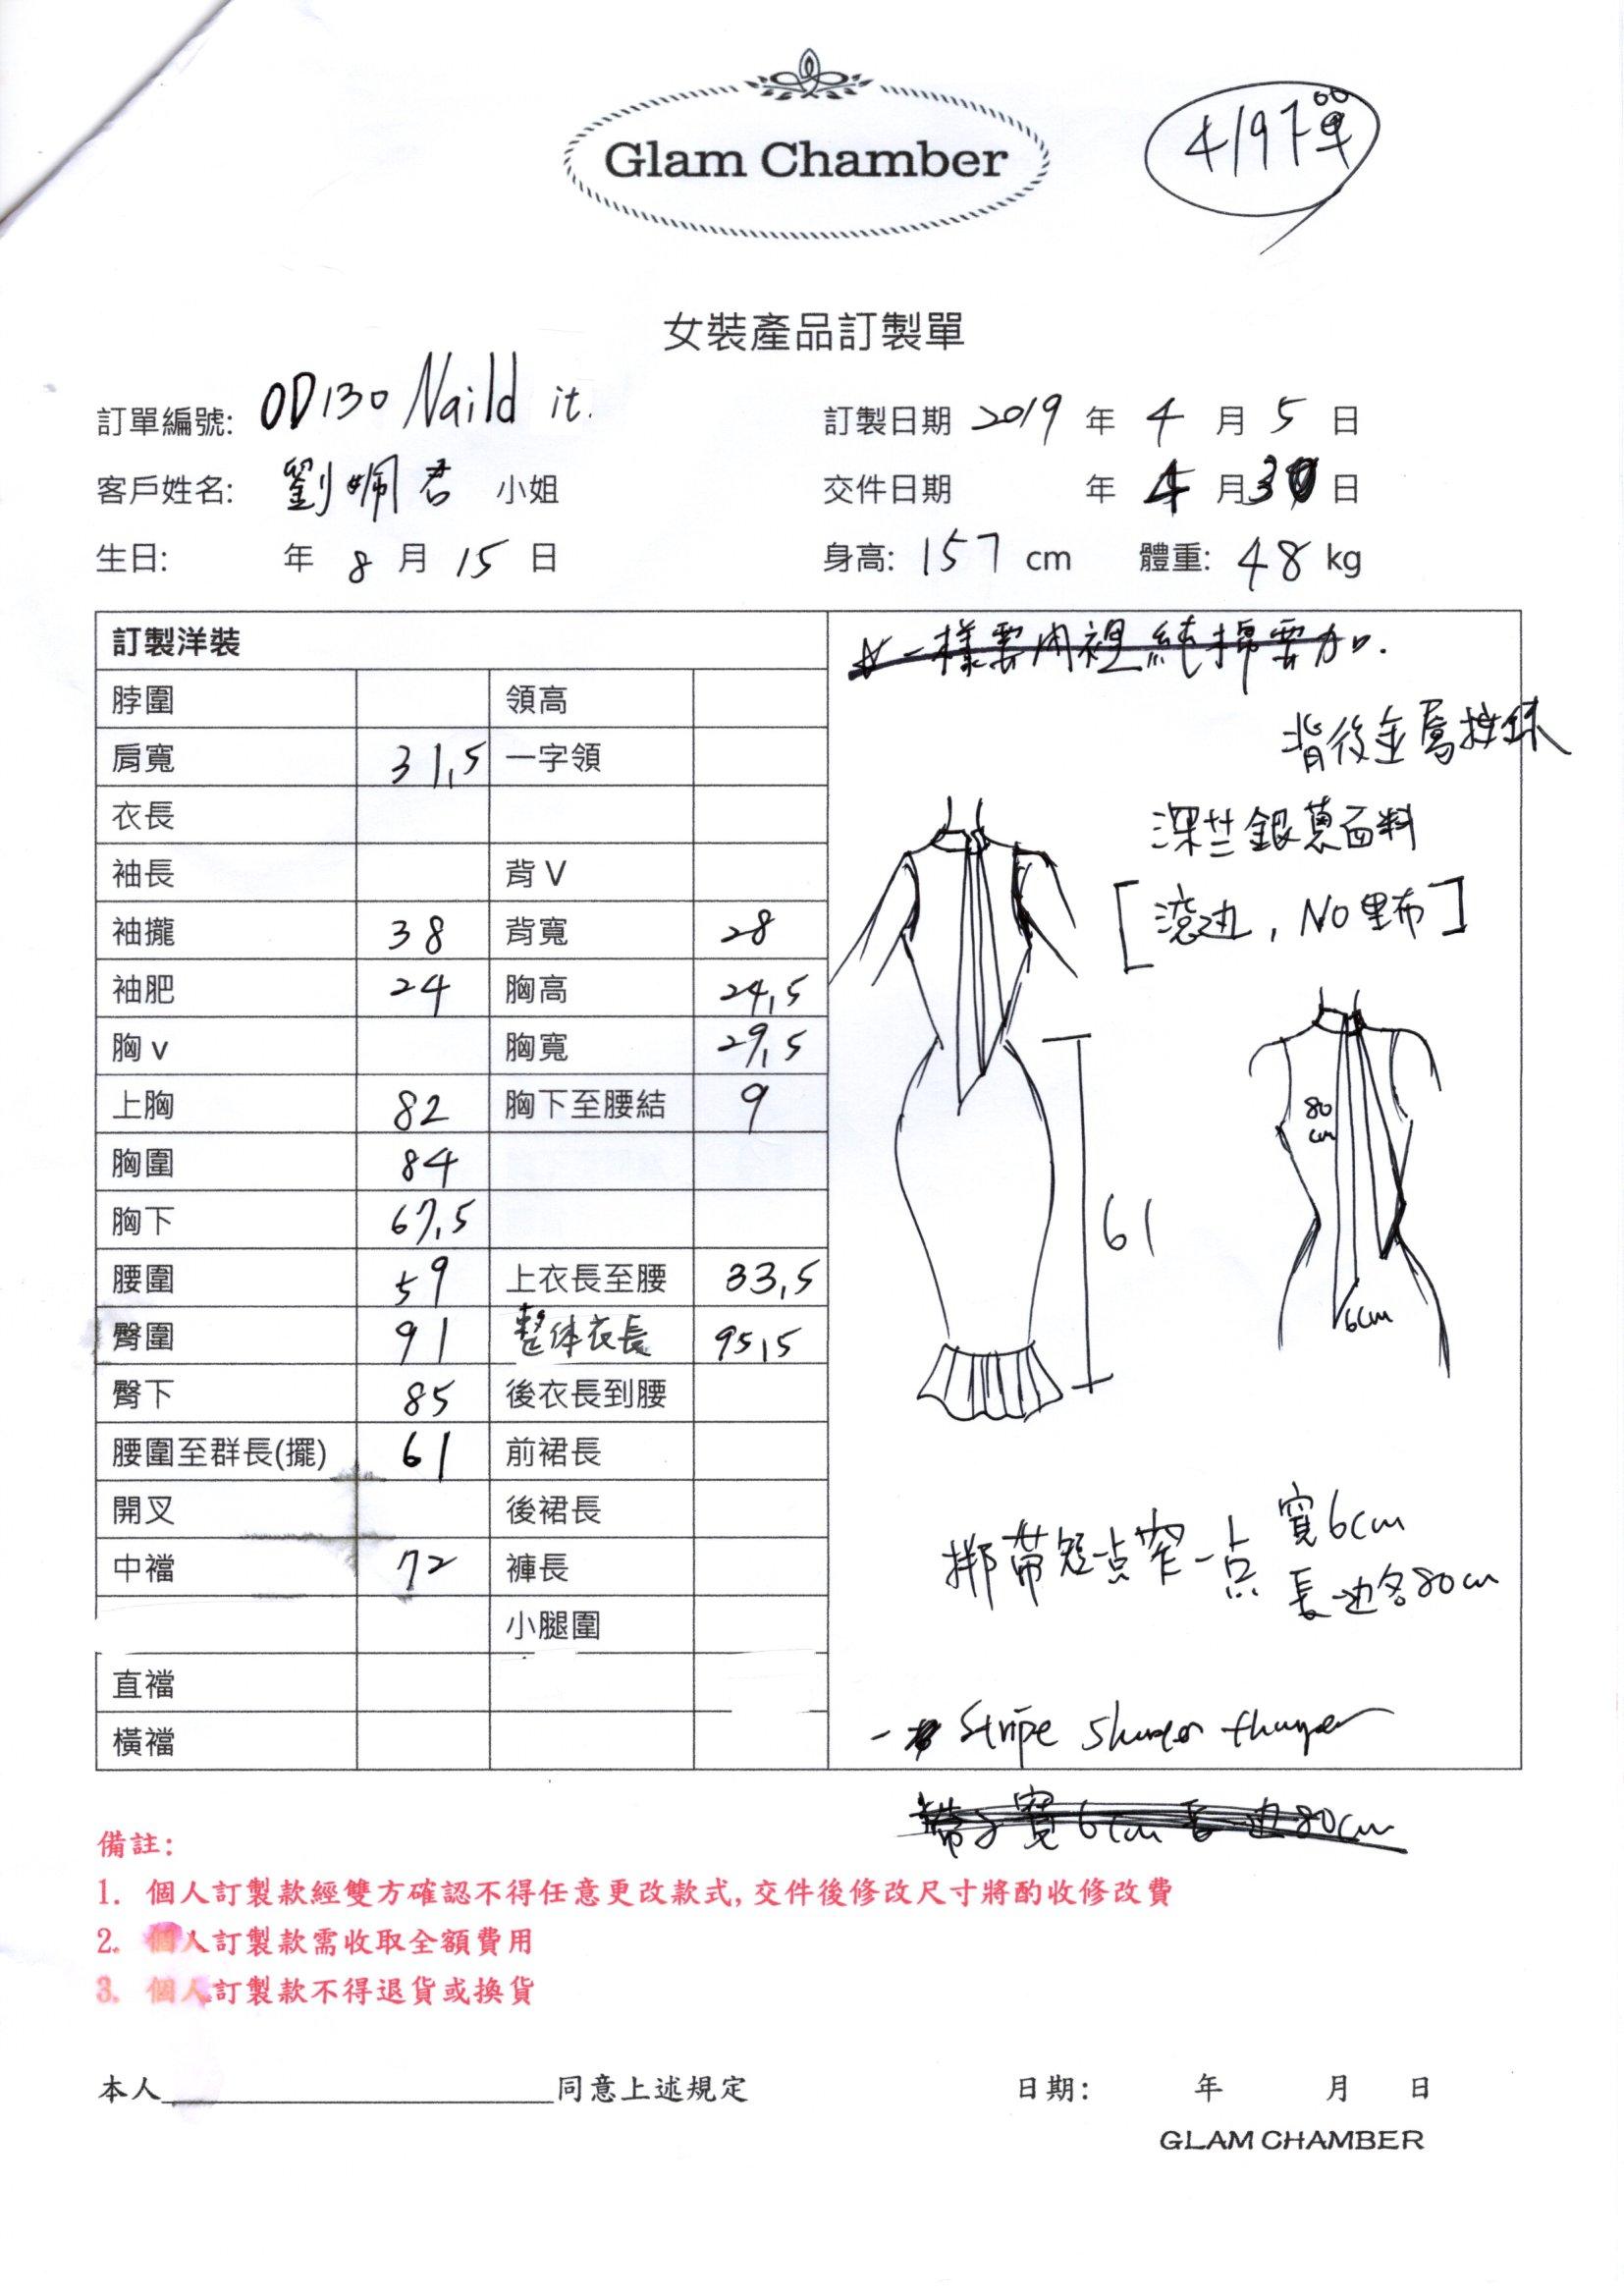 Glam Chamber
4/9下單
女裝產品訂製單
訂單編號: OD130 Naild it.
訂製日期 2019 年 4 月 5 日
客戶姓名: 劉 君 小姐
交件日期 年 4 月 30 日
生日: 年 8 月 15 日
身高: 157 cm 體重: 48 kg
訂製洋裝
脖圍 領高
肩寬 31,5 一字領
衣長
袖長 背 V
袖攏 38 背寬 28
袖肥 24 胸高 24,5
胸 v 胸寬 29,5
上胸 82 胸下至腰結 9
胸圍 84
胸下 67,5
腰圍 59 上衣長至腰 33,5
臀圍 91 整体衣長 95,5
臀下 85 後衣長到腰
腰圍至群長(擺) 61 前裙長
開叉 後裙長
中襠 72 褲長
小腿圍
直襠
橫襠
一樣要用裡純棉要加.
背後金屬拉鍊
深芷銀蔥面料
[滾边, NO里布]
80
cm
61
6cm
綁帶短一点窄一点
寬6cm
長一边各80cm
- Stripe
帶子寬6cm 長一边80cm
備註:
1. 個人訂製款經雙方確認不得任意更改款式, 交件後修改尺寸將酌收修改費
2. 個人訂製款需收取全額費用
3. 個人訂製款不得退貨或換貨
本人 同意上述規定
日期: 年 月 日
GLAM CHAMBER